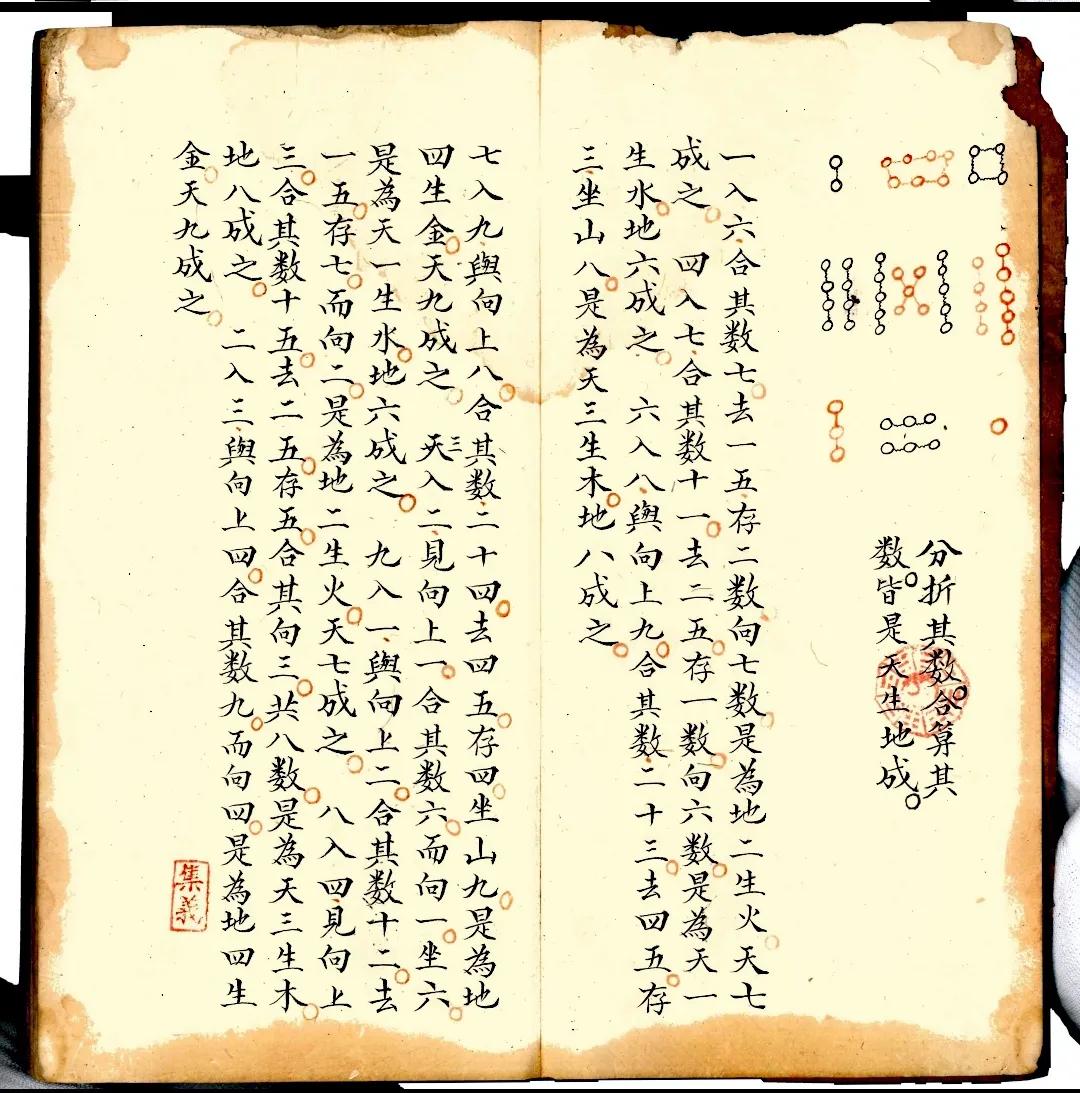 分折其数合算其
数皆是天生地成
一入六合其数七去一五存二数向七数是為地二生火天七
成之 四入七合其数十一去二五存一数向六数是為天一
生水地六成之 六入八與向上九合其数二十三去四五存
三坐山八是為天三生木地八成之
七入九與向上八合其数二十四去四五存四坐山九是為地
四生金天九成之 三入二見向上一合其数六而向一坐六
是為天一生水地六成之 九入一與向上二合其数十二去
一五存七而向二是為地二生火天七成之 八入四見向上
三合其数十五去二五存五合其向三共八数是為天三生木
地八成之 二入三與向上四合其数九而向四是為地四生
金天九成之
集義